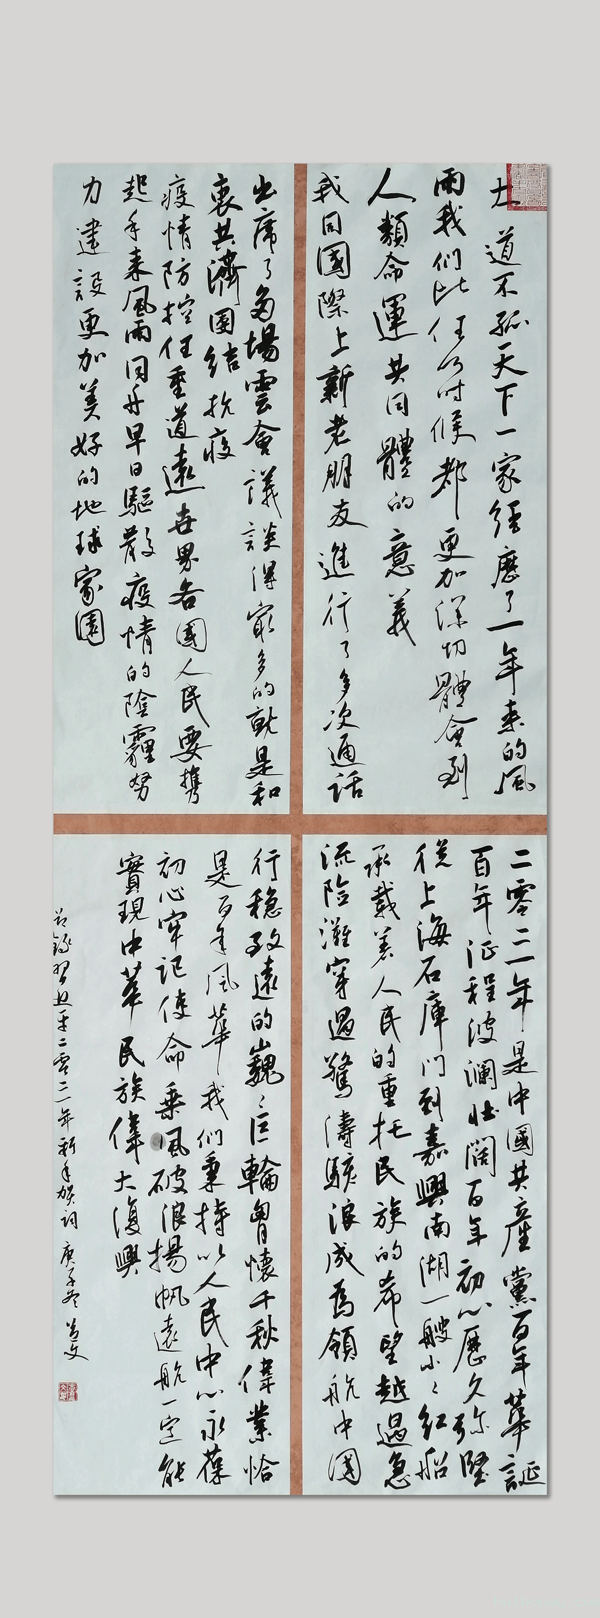 大道不孤天下一家經歷了一年來的風
雨我們比任何時候都更加深切體會到
人類命運共同體的意義
我同國際上新老朋友進行了多次通話
出席了多場雲會議談得最多的就是和
衷共濟團結抗疫
疫情防控任重道遠世界各國人民要攜
起手來風雨同舟早日驅散疫情的陰霾努
力建設更加美好的地球家園
二零二一年是中國共產黨百年華誕
百年征程波瀾壯闊百年初心歷久彌堅
從上海石庫門到嘉興南湖一艘小小紅船
承載着人民的重托民族的希望越過急
流險灘穿過驚濤駭浪成為領航中國
行穩致遠的巍巍巨輪胸懷千秋偉業恰
是百年風華我們秉持以人民中心永葆
初心牢記使命乘風破浪揚帆遠航一定能
實現中華民族偉大復興
節錄習近平二零二一年新年賀詞庚子冬